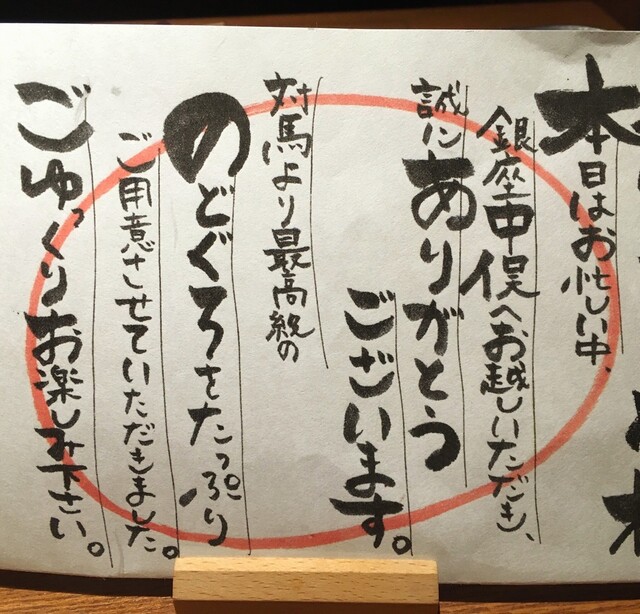 本日はお忙しい中、
銀座中俣へお越しいただき、
誠にありがとう
ございます。
対馬より最高級の
のどぐろをたっぷり
ご用意させていただきました。
ごゆっくりお楽しみ下さい。